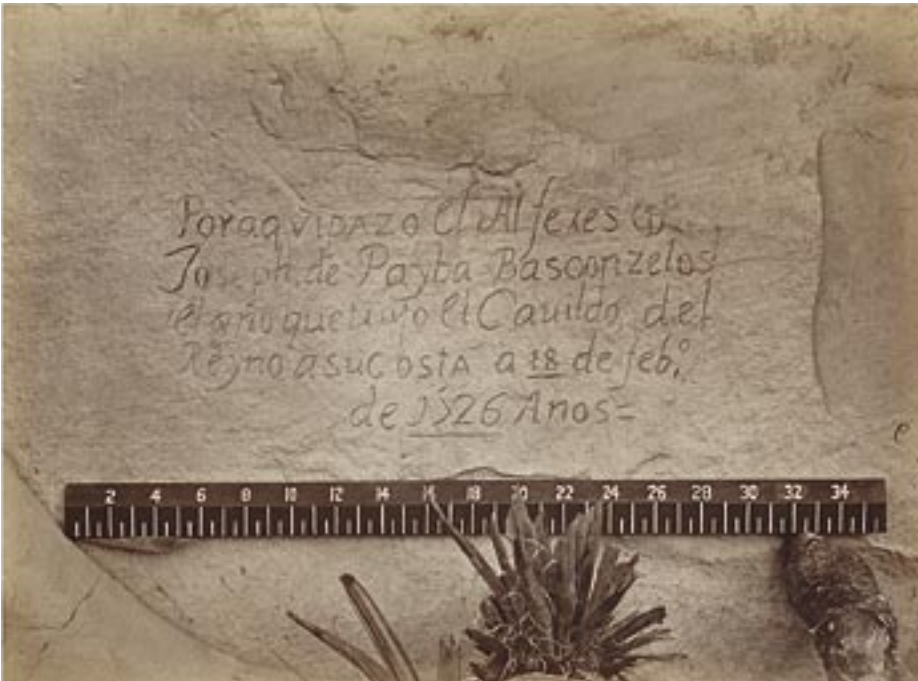 Por aqui Dazo el Alferes Dn
Joseph de Payba Basconzelos
el año que tujo el Cauildo del
Reyno a su costa a 18 de febo
de 1526 Años=
2 4 6 8 10 12 14 16 18 20 22 24 26 28 30 32 34